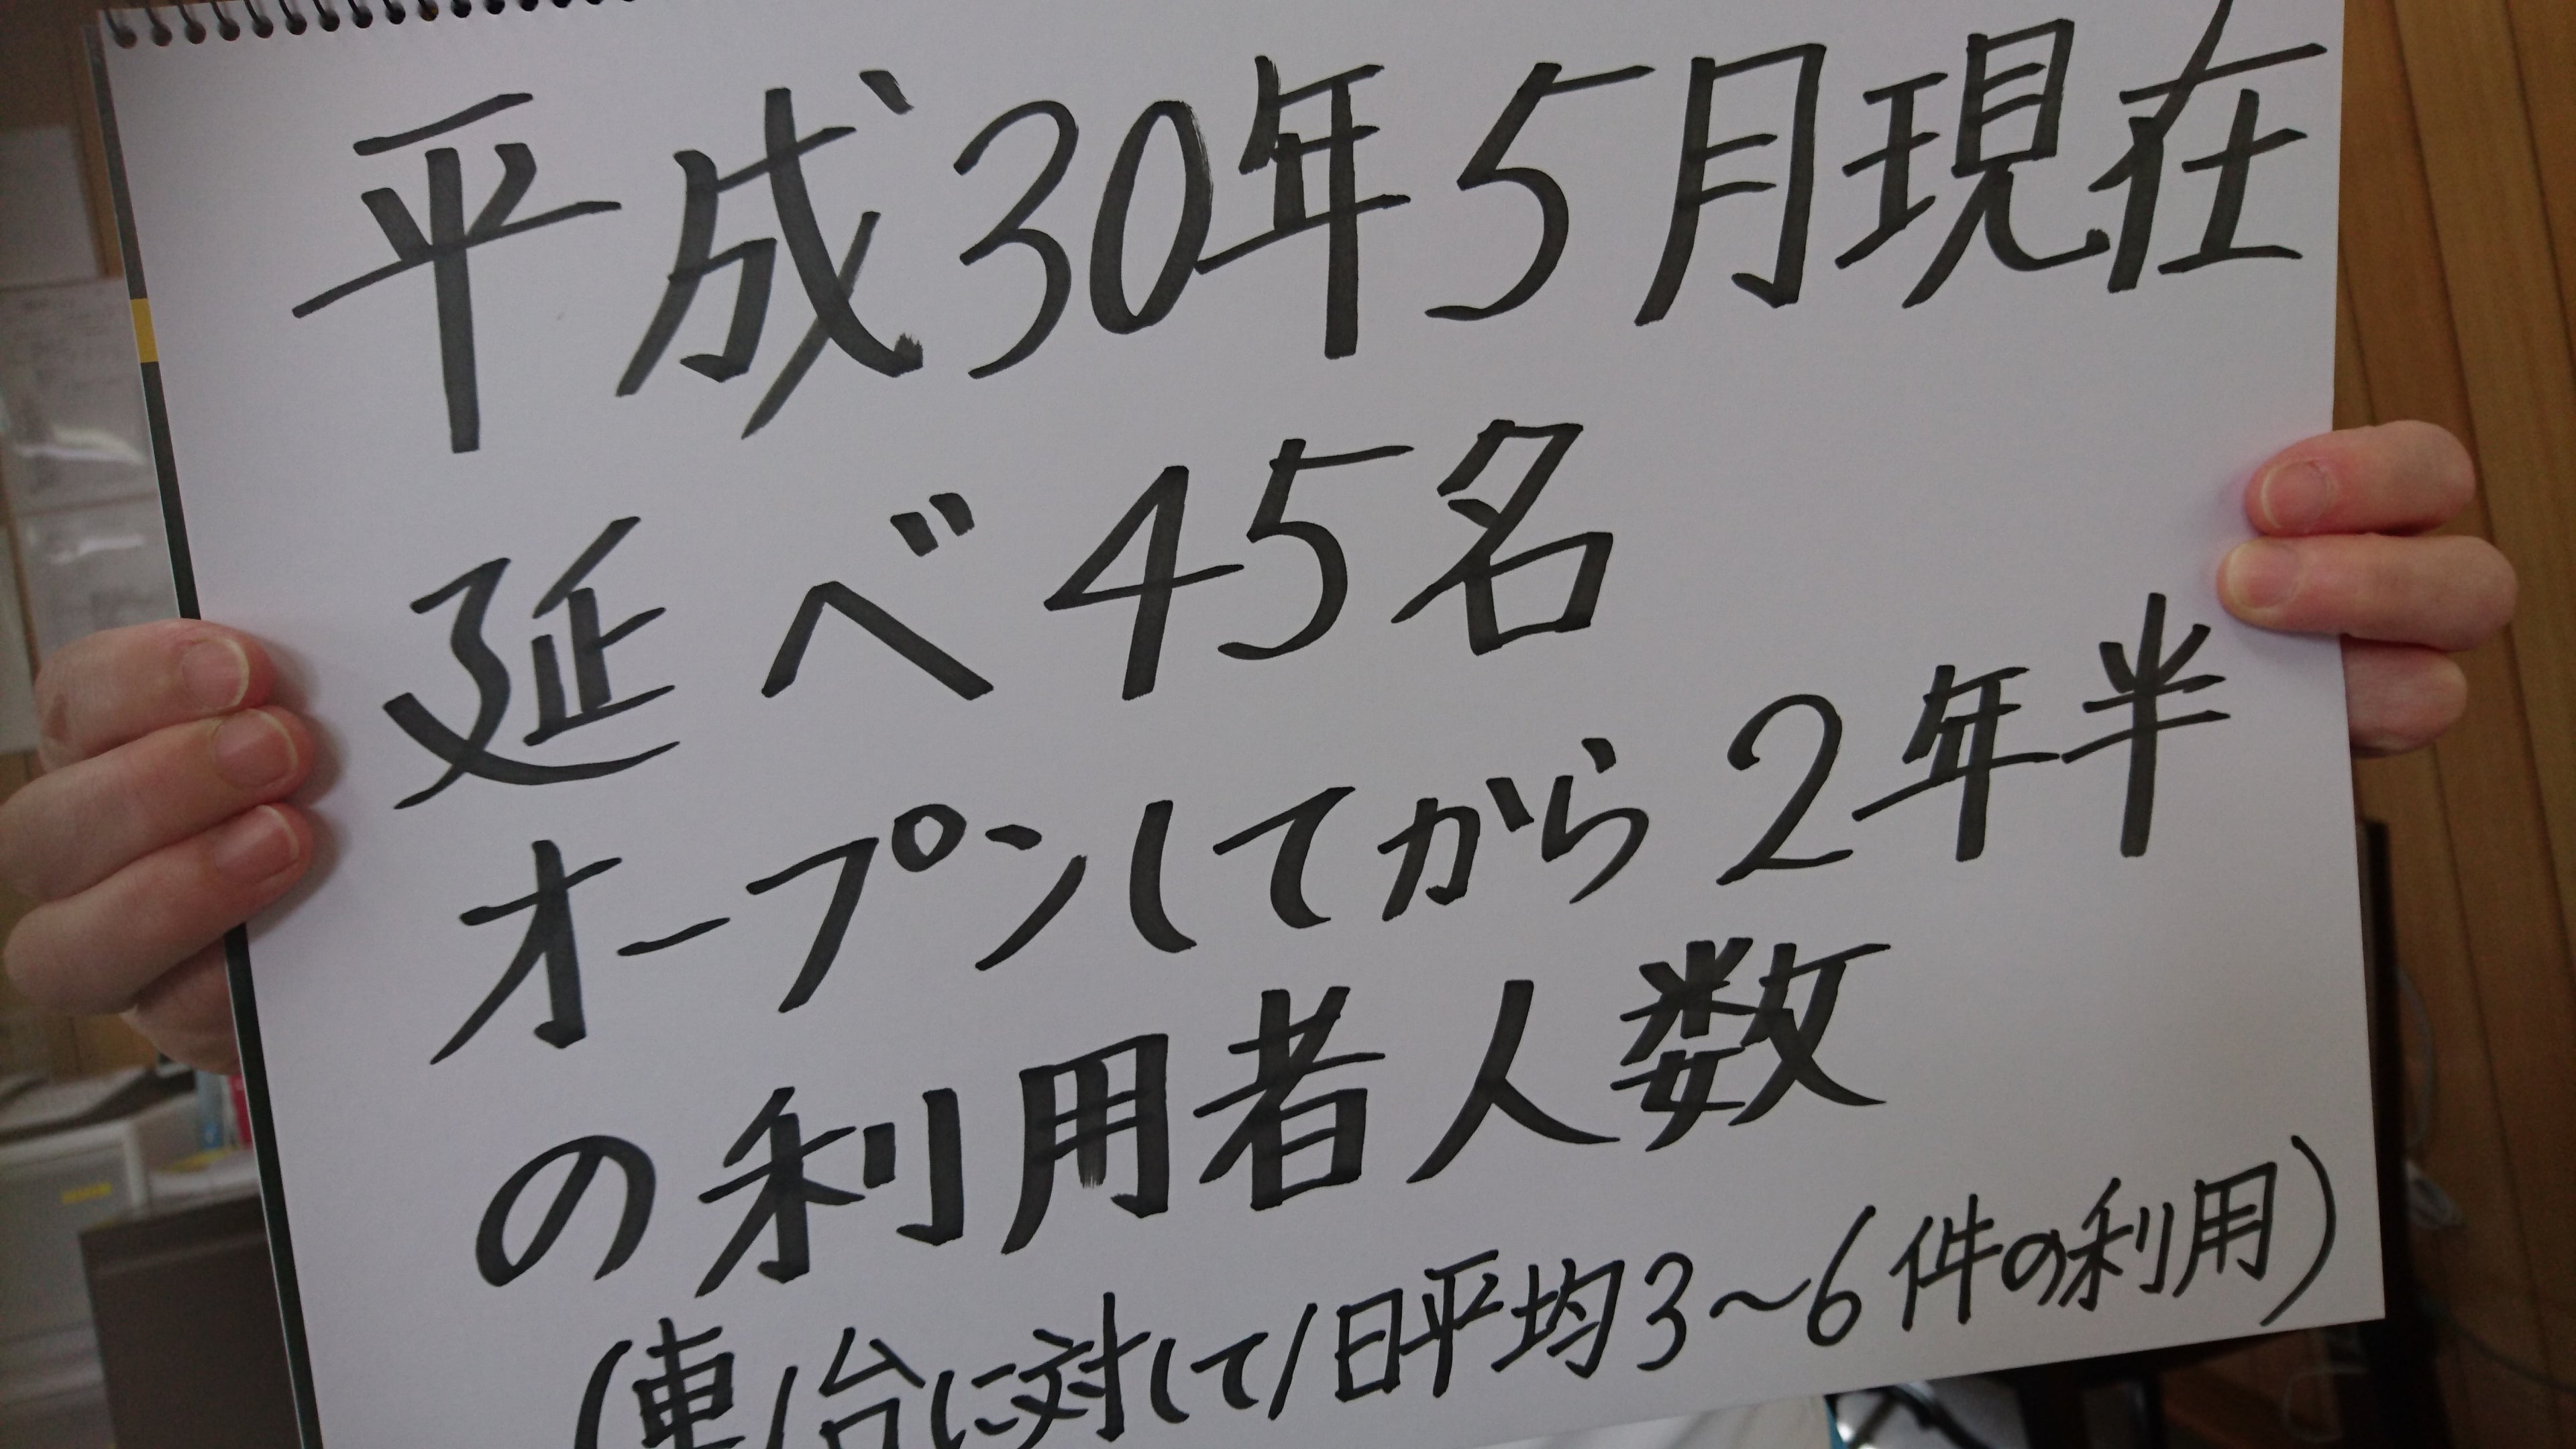 平成30年5月現在
延べ45名
オープンしてから2年半
の利用者人数
(車1台に対して1日平均3～6件の利用)